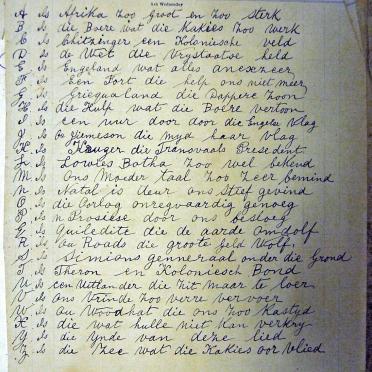 Ash Wednesday
A Is Afrika Zoo Groot en Zoo Sterk
B Is die Boere wat die Kakies Zoo Werk
C Is Chitzinger een Kolonische veld
D Is De Wet die Vrystaatse held
E Is Engeland wat alles anexzeer
F Is Een Fort die help ons niet meer
G Is Griequaland die Dappere Zoon
H Is die Hulp wat die Boere verloon
I Is een uur door door die Engelse Vlag
J Is Jiemeson die myd haar vlag
K Is Kruger die Transvaals President
L Is Lowies Botha Zoo wel bekend
M Is Ons Moeder taal Zoo Zeer bemind
N Is Natal is deur ons Stief gevind
O Is die Oorlog onregvaardig genoeg
P Is n Prosiese door ons besloeg
Q Is Quiledite die de aarde omdolf
R Is Au Roads die groote Geld Wolf
S Is Simians genneraal onder die Grond
T Is Theron en Koloniesch Bond
U Is een Uetlander die Zit maar te loer
V Is Ons Vrinde Zoo verre vervoer
W Is Au Woodhat die ons Zoo Kastyd
X Is die wat hulle niet Kan verkry
Y Is die Ynde van deze lied
Z Is die Zee wat die Kakies oor vlied